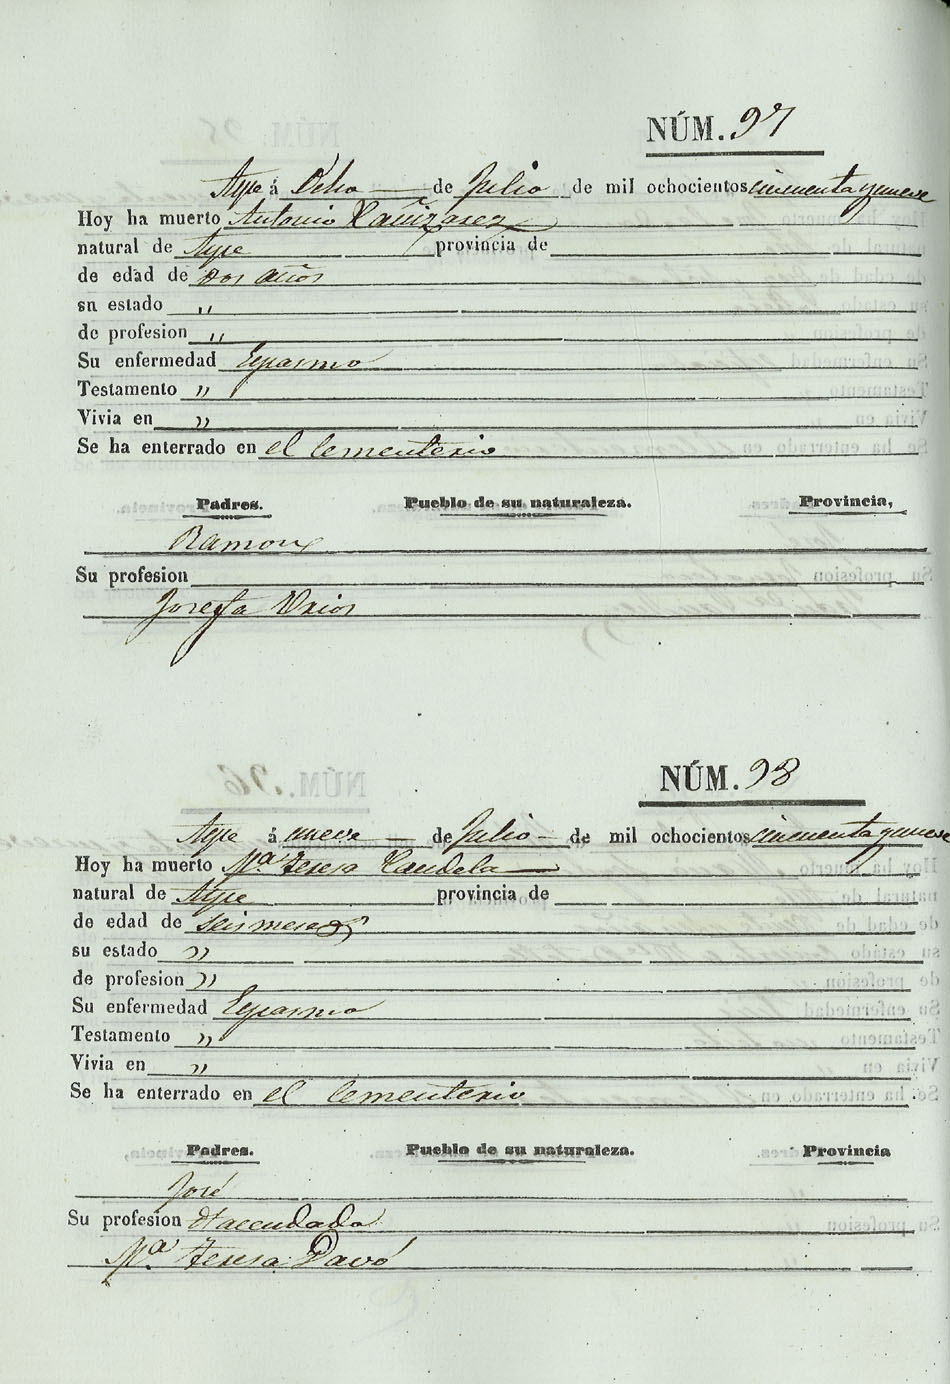 NÚM. 97
Aspe á Ocho de Julio de mil ochocientos cincuenta y nueve
Hoy ha muerto Antonio Cañizares
natural de Aspe provincia de
de edad de dos años
su estado "
de profesion "
Su enfermedad Espasmo
Testamento "
Vivia en "
Se ha enterrado en el Cementerio
Padres. Pueblo de su naturaleza. Provincia,
Ramon
Su profesion
Josefa Urios
NÚM. 98
Aspe á nueve de Julio de mil ochocientos cincuenta y nueve
Hoy ha muerto Mª. Teresa Candela
natural de Aspe provincia de
de edad de seis meses
su estado "
de profesion "
Su enfermedad Espasmo
Testamento "
Vivia en "
Se ha enterrado en el Cementerio
Padres. Pueblo de su naturaleza. Provincia
José
Su profesion Haccudado
Mª. Teresa Davó